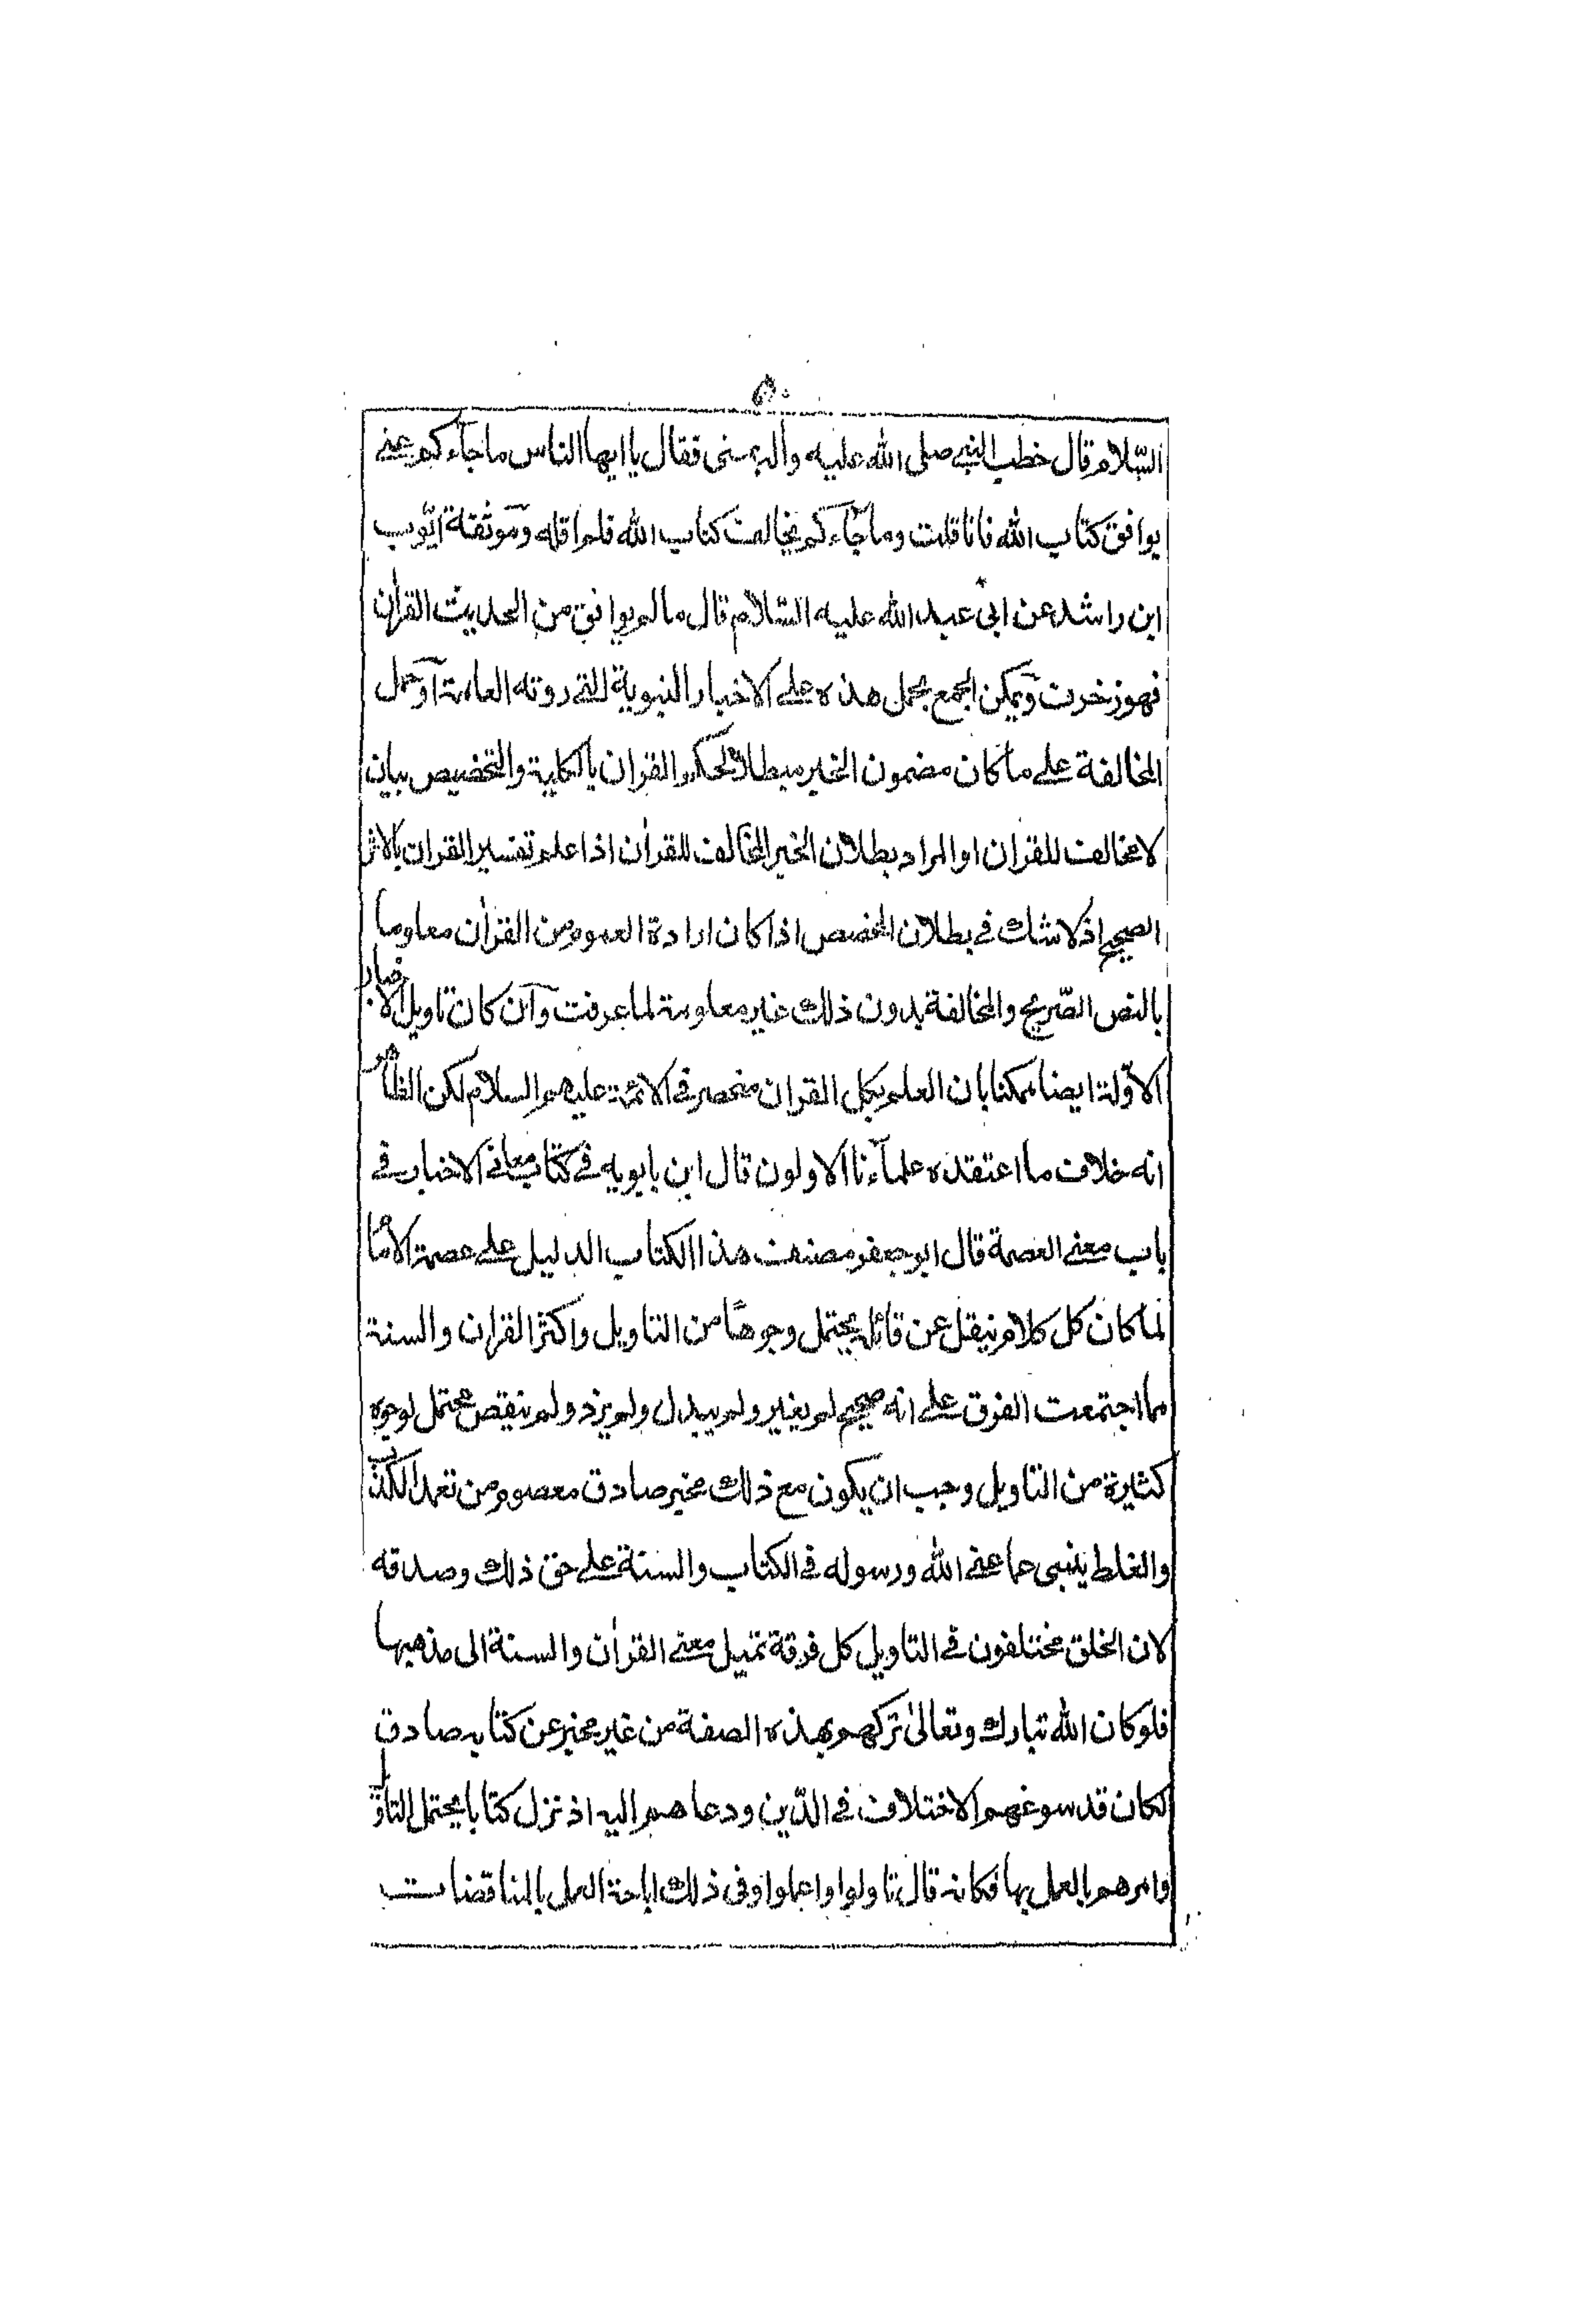 ۵۰
السّلام قال خطب النبي صلى الله عليه وآله بمنى فقال يا ايها الناس ما جآءكم عني
يوافق كتاب الله فانا قلت وما جآءكم يخالف كتاب الله فلم اقله وموثقة ايّوب
ابن راشد عن ابى عبد الله عليه السّلام قال مالم يوافق من الحديث القران
فهو زخرف ويمكن الجمع بحمل هذه على الاخبار النبوية التي روته العامة او حمل
المخالفة على ما كان مضمون الخبر مبطلا لحكم القران بالكلية والتخصيص بيان
لا مخالف للقران او المراد بطلان الخبر المخالف للقران اذا علم تفسير القران بالاثر
الصحيح اذ لا شك في بطلان المخصص اذا كان ارادة العموم من القران معلوما
بالنص الصّريح والمخالفة بدون ذلك غير معلومة لما عرفت وآن كان تاويل الاخبار
الاوّلة ايضا ممكنا بان العلم بكل القران منحصر في الائمة عليهم السلام لكن الظاهر
انه خلاف ما اعتقده علمآءنا الاولون قال ابن بابويه في كتاب معاني الاخبار في
باب معنى العصمة قال ابو جعفر مصنف هذا الكتاب الدليل على عصمة الامام
لما كان كل كلام ينقل عن قائله يحتمل وجوهًا من التاويل واكثر القران والسنة
مما اجتمعت الفرق على انه صحيح لم يغير ولم يبدل ولم يزد ولم ينقص محتمل لوجوه
كثيرة من التاويل وجب ان يكون مع ذلك مخبر صادق معصوم من تعمد الكذب
والغلط ينبى عما عنى الله ورسوله في الكتاب والسنة على حق ذلك وصدقه
لان الخلق مختلفون في التاويل كل فرقة تميل معنى القران والسنة الى مذهبها
فلو كان الله تبارك وتعالى تركهم بهذه الصفة من غير مخبر عن كتابه صادق
لكان قد سوغهم الاختلاف في الدّين ودعاهم اليه اذ نزل كتابا يحتمل التاويل
وامرهم بالعمل بها فكانه قال تاولوا واعملوا وفى ذلك اباحة العمل بالمناقضات